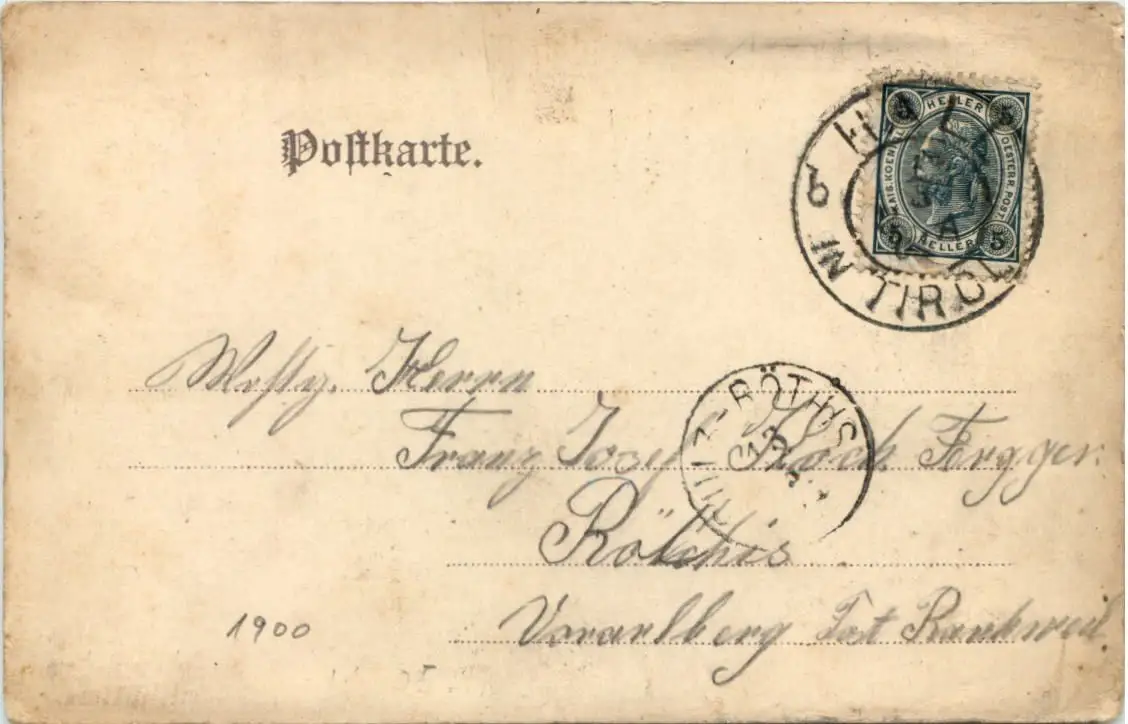 Postkarte.
HALL
IN TIROL
5 HELLER 5
KAIS. KOENIGL. OESTERR. POST.
5 HELLER 5
Herrn
SULZ-RÖTHIS
Franz Josef Koch. Fergger.
Röthis
Vorarlberg Post Rankweil
1900